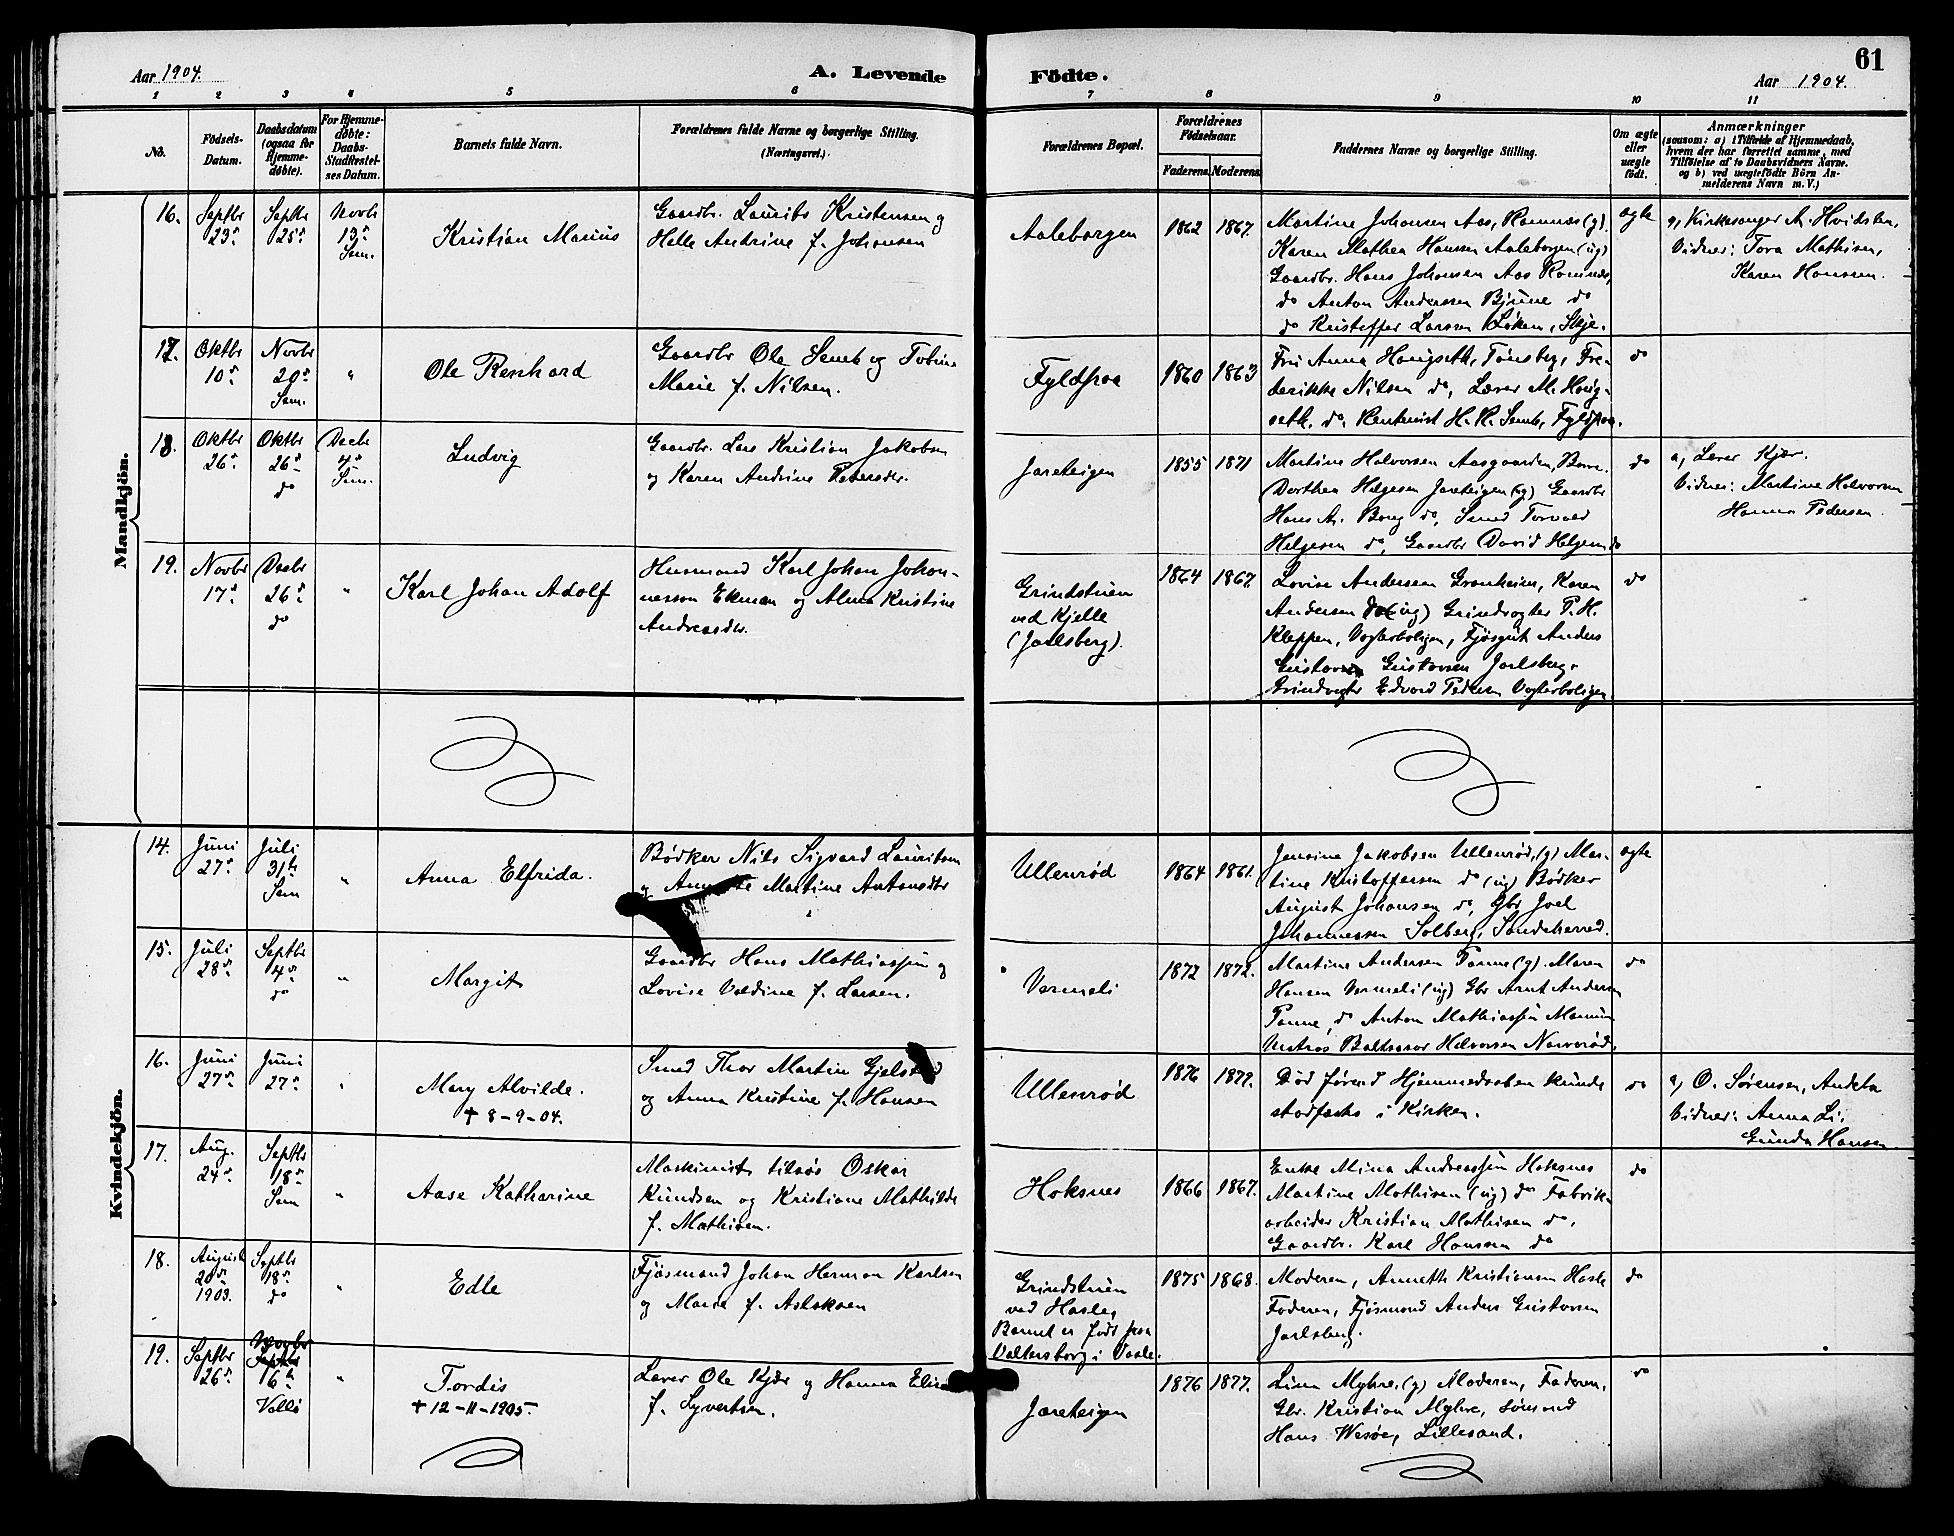 61
Aar 1904.
A. Levende
Födte.
Aar 1904.
1 2 3 4 5 6 7 8 9 10 11
No.
Födsels-
Datum.
Daabsdatum
(ogsaa for
Hjemme-
døbte).
For Hjemme-
døbte:
Daabs-
Stadfæstel-
ses Datum.
Barnets fulde Navn.
Forældrenes fulde Navne og borgerlige Stilling.
(Næringsvei.)
Forældrenes Bopæl.
Forældrenes
Födselsaar.
Faderens. Moderens.
Faddernes Navne og borgerlige Stilling.
Om ægte
eller
uægte
født.
Anmærkninger
(saasom: a) i Tilfælde af Hjemmedaab,
hvem der har forrettet samme, med
Tilföielse af to Daabsvidners Navne.
og b) ved uægtefödte Börn An-
melderens Navn m. V.)
Mandkjön.
16.
Septbr
23de
Septbr
25de
Novbr
13de
Sem.
Kristian Marius
Gaardbr. Laurits Kristensen og
Helle Andrine f. Johansen
Aaleborgen
1862
1867.
Martine Johansen Aas, Ramnæs (g).
Karen Mathea Hansen Aaleborgen (ug)
Gaardbr. Hans Johansen Aas Ramnæs,
do Anton Anderssen Bjune do
do Kristoffer Larssen Løken, Skje.
ægte
a, Kirkesanger A. Hvidsten,
Vidner: Tora Mathisen,
Karen Hansen.
17.
Oktbr
10de
Novbr
20de
Sem.
"
Ole Renhard
Gaardbr Ole Semb og Tobine
Marie f. Nilsen.
Fyldpaa
1860
1863
Fru Anna Haugseth, Tønsberg, Fre-
derikke Nilsen do, Lærer M. Haug-
seth. do, Rentenist H. R. Semb, Fyldpaa.
do
18.
Oktbr
26de
Oktbr
26de
do
Decbr
4de
Sem.
Ludvig
Gaardbr. Lars Kristian Jakobsen
og Karen Andrine Petersdtr.
Jareteigen
1855
1871
Martine Halvorsen Aasgaarden, Borre.
Dorthea Helgesen Jareteigen (ug) Gaardbr
Hans A. Borg do, Smed Torvald
Helgesen do, Gaardbr David Helgesen do
do
a, Lærer Kjær.
Vidner: Martine Halvorsen
Hanna Pedersen.
19.
Novbr
17de
Decbr
26de
do
"
Karl Johan Adolf
Husmand Karl Johan Johan-
nesson Ekman og Alma Kristine
Andreasdtr.
Grindstuen
ved Kjelle
(Jarlsberg).
1864
1867.
Lovise Andersen Granheien, Karen
Andersen do (ug) Grindvogter P. H.
Kleppen, Vogterboligen, Fjøsgut Anders
Gustavsen Jarlsberg.
Grindvogter Edvard Pedersen Vogterboligen
do
Kvindekjön.
14.
Juni
27de
Juli
31te
Sem
"
Anna Elfrida.
Bødker Nils Sigvard Lauritsen
og Martine Antonsdtr
Ullenrød
1864
1861.
Jensine Jakobsen Ullenrød, (g) Mar-
tine Kristoffersen do (ug) Bødker
August Johansen do, Gbr Joel
Johannessen Solberg, Sandeherred.
ægte
15.
Juli
28de
Septbr
4de
do
"
Margit
Gaardbr Hans Mathiassen og
Lovise Valdine f. Larsen.
Vermeli
1872
1872.
Martine Andersen Tanne (g). Maren
Hansen Vermeli (ug) Gbr Arnt Andersen
Tanne, do Anton Mathiassen
Baltsasar Halvorsen Narverød.
do
16.
Juni
27de
Juni
27de
"
Mary Alvilde.
+ 8-9-04.
Smed Thor Martin Gjelstad
og Anna Kristine f. Hansen
Ullenrød
1876
1877.
Død førend Hjemmedaaben kunde
stadfæstes i Kirken.
do
a, O. Sørensen, Andebu
Vidner: Anna Li,
Gunda Hansen
17.
Aug.
24de
Septbr
18de
Sem
"
Aase Katharine
Maskinist tilsøs Oskar
Knudsen og Kristiane Mathilde
f. Mathisen.
Hoksnes
1866
1867.
Enke Mina Andreassen Hoksnes
Martine Mathisen (ug) do Fabrik-
arbeider Kristian Mathisen do,
Gaardbr. Karl Hanssen do
do
18.
August
20de
1903.
Septbr
18de
do
"
Edle
Fjøsmand Johan Herman Karlsen
og Marie f. Aslaksen
Grindstuen
ved Hasle,
Barnet er født paa
Valtersborg i Vaale.
1875
1868.
Moderen, Annette Kristiansen Hasle
Faderen, Fjøsmand Anders Gustavsen
Jarlsberg.
do
19.
Septbr
26de
Novbr
Septbr
16de
Vallø
"
Tordis
+ 12-11-1905.
Lærer Ole Kjær og Hanna
f. Syvertsen.
Jareteigen
1876
1877.
Lina Myhre, (g) Moderen, Faderen,
Gbr. Kristian Myhre, Sømand
Hans Wesøe, Lillesand.
do